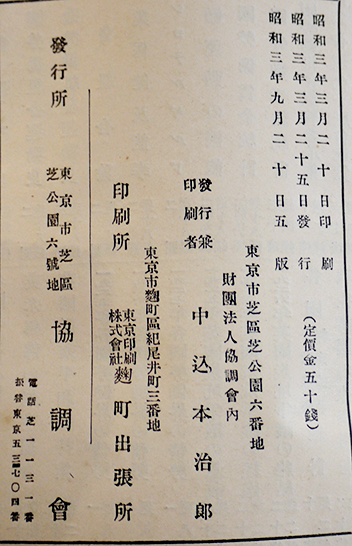 昭和三年三月二十日印刷
昭和三年三月二十五日發行
昭和三年九月二十日五版
(定價金五十錢)
東京市芝區芝公園六番地
財團法人協調會內
發行兼
印刷者
中込本治郎
東京市麴町區紀尾井町三番地
印刷所
東京印刷
株式會社
麴町出張所
發行所
東京市芝區
芝公園六號地
協調會
電話芝一一三一番
振替東京五三七〇四番